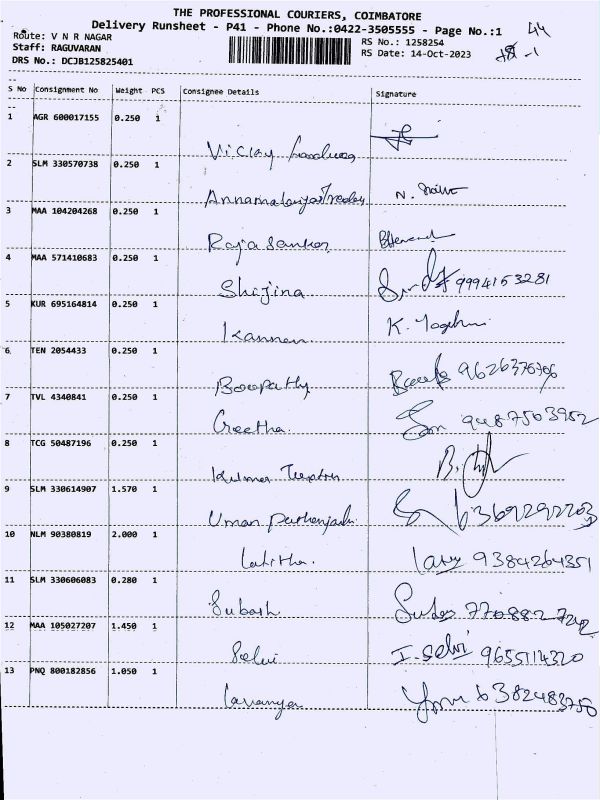 THE PROFESSIONAL COURIERS, COIMBATORE
Delivery Runsheet - P41 - Phone No.:0422-3505555 - Page No.:1
44
Route: V N R NAGAR
RS No.: 1258254
Staff: RAGUVARAN
RS Date: 14-Oct-2023
DRS No.: DCJB125825401
S No Consignment No Weight PCS Consignee Details Signature
1 AGR 600017155 0.250 1
Vijay
2 SLM 330570738 0.250 1
3 MAA 104204268 0.250 1
Raja Sankar
4 MAA 571410683 0.250 1
Shijina 9994153281
5 KUR 695164814 0.250 1
Kannan K. Yogesh
6 TEN 2054433 0.250 1
Boopathy
7 TVL 4340841 0.250 1
Geetha. 9487503952
8 TCG 50487196 0.250 1
Kumar
9 SLM 330614907 1.570 1
Uman 6369292203
10 NLM 90380819 2.000 1
Lalitha. 9384264351
11 SLM 330606083 0.280 1
Subash 7708827242
12 MAA 105027207 1.450 1
Selvi I. Selvi 9655114320
13 PNQ 800182856 1.050 1
Lavanya 6382483750